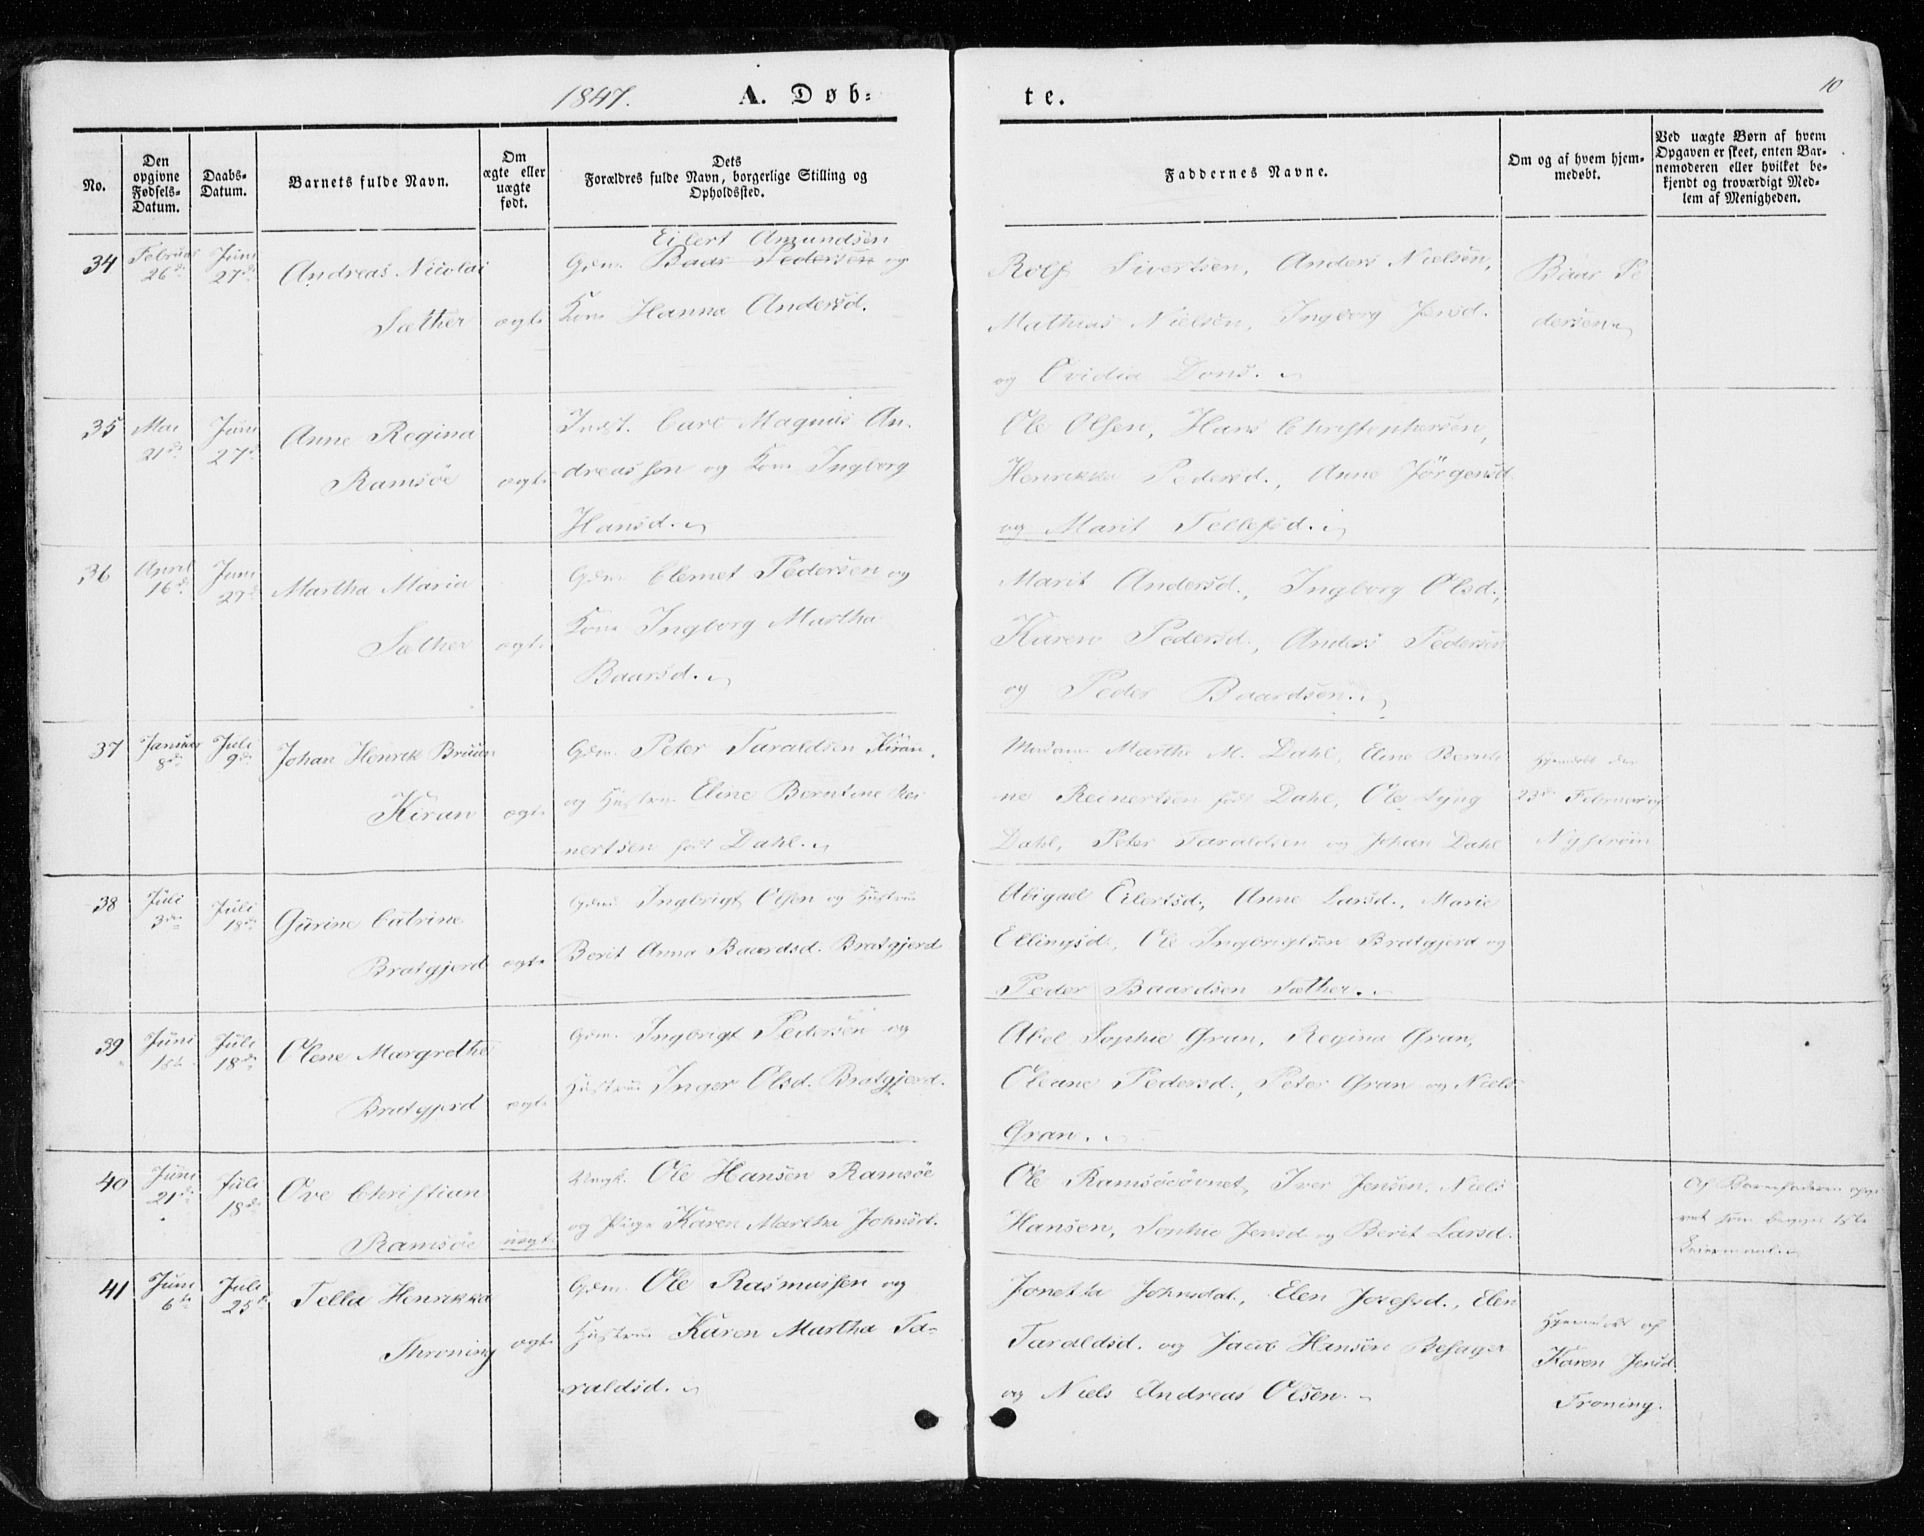 1847. A. Døb= te. 10
No.
Den opgivne Fødsels-Datum.
Daabs-Datum.
Barnets fulde Navn.
Om ægte eller uægte født.
Dets Forældres fulde Navn, borgerlige Stilling og Opholdssted.
Faddernes Navne.
Om og af hvem hjemmedøbt.
Ved uægte Børn af hvem Opgaven er skeet, enten Barnemoderen eller hvilket bekjendt og troværdigt Medlem af Menigheden.
34 Februar 26de Juni 27de
Andreas Nicolai
Sæther ægte
Eilert Amundsen
Gdm. Baar Pedersen og
Kone Hanna Andersd.
Rolf Sivertsen, Anders Nielsen,
Mathias Nielsen, Ingborg Jensd.
og Ovidia Dons.
Baar Pe
dersen
35 Mai 21de Juni 27de
Anne Regina
Ramsøe ægte
Indst. Carl Magnus An-
dreassen og Kone Ingborg
Hansd.
Ole Olsen, Hans Christophersen,
Henrikka Pedersd., Anne Jørgensd.
og Marit Tellefsd.
36 April 16de Juni 27de
Martha Maria
Sæther ægte
Gdm. Clemet Pedersen og
Kone Ingborg Martha
Baarsd.
Marit Andersd., Ingborg Olsd.,
Karen Pedersd., Anders Pedersen
og Peder Baardsen.
37 Januar 8de Juli 9de
Johan Henrik Bruun
Kiran ægte
Gdm. Peter Taraldsen Kiran,
og Hustrue Eline Berntine Rei
nertsen født Dahl.
Madame Marthe M. Dahl, Eline Bernti
ne Reinertsen født Dahl, Ole Lyng
Dahl, Peter Taraldsen og Johan Dahl
Hjemdøbt den
23de Februar af
Nystrøm
38 Juli 3die Juli 18de
Gurine Catrine
Bratgjerd ægte
Gdmd. Ingbrigt Olsen og Hustrue
Berit Anna Baardsd. Bratgjerd
Abigael Eilertsd., Anne Larsd., Marie
Ellingsd., Ole Ingbrigtsen Bratgjerd og
Peder Baardsen Sæther.
39 Juni Juli 18de
Olene Margrethe
Bratgjerd ægte
Gdm. Ingbrigt Pedersen og
Hustrue Inger Olsd. Bratgjerd.
Abel Sophie Gran, Regina Gran,
Oleane Pedersd., Peter Gran og Niels
Gran.
40 Juni 21de Juli 18de
Ove Christian
Ramsøe uægte
Ungk. Ole Hansen Ramsøe
og Pige Karen Martha Johnsd.
Ole Ramsøeøvnet, Iver Jensen, Niels
Hansen, Sophie Jensd og Berit Larsd.
Af Barnefaderen opgi
vet som begges 1ste
Leiermaal.
41 Juni 6te Juli 25de
Tella Henrikka
Throning ægte
Gdm. Ole Rasmussen og
Hustrue Karen Martha Ta-
raldsd.
Jonetta Johnsdd., Elen Josefsd., Elen
Taraldsd. og Jacob Hansen Besager
og Niels Andreas Olsen.
Hjemdøbt af
Karen Jensd.
Froning.